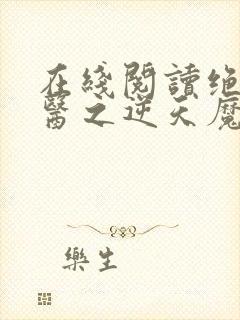 在綫閱讀绝
醫之逆天魔
樂生